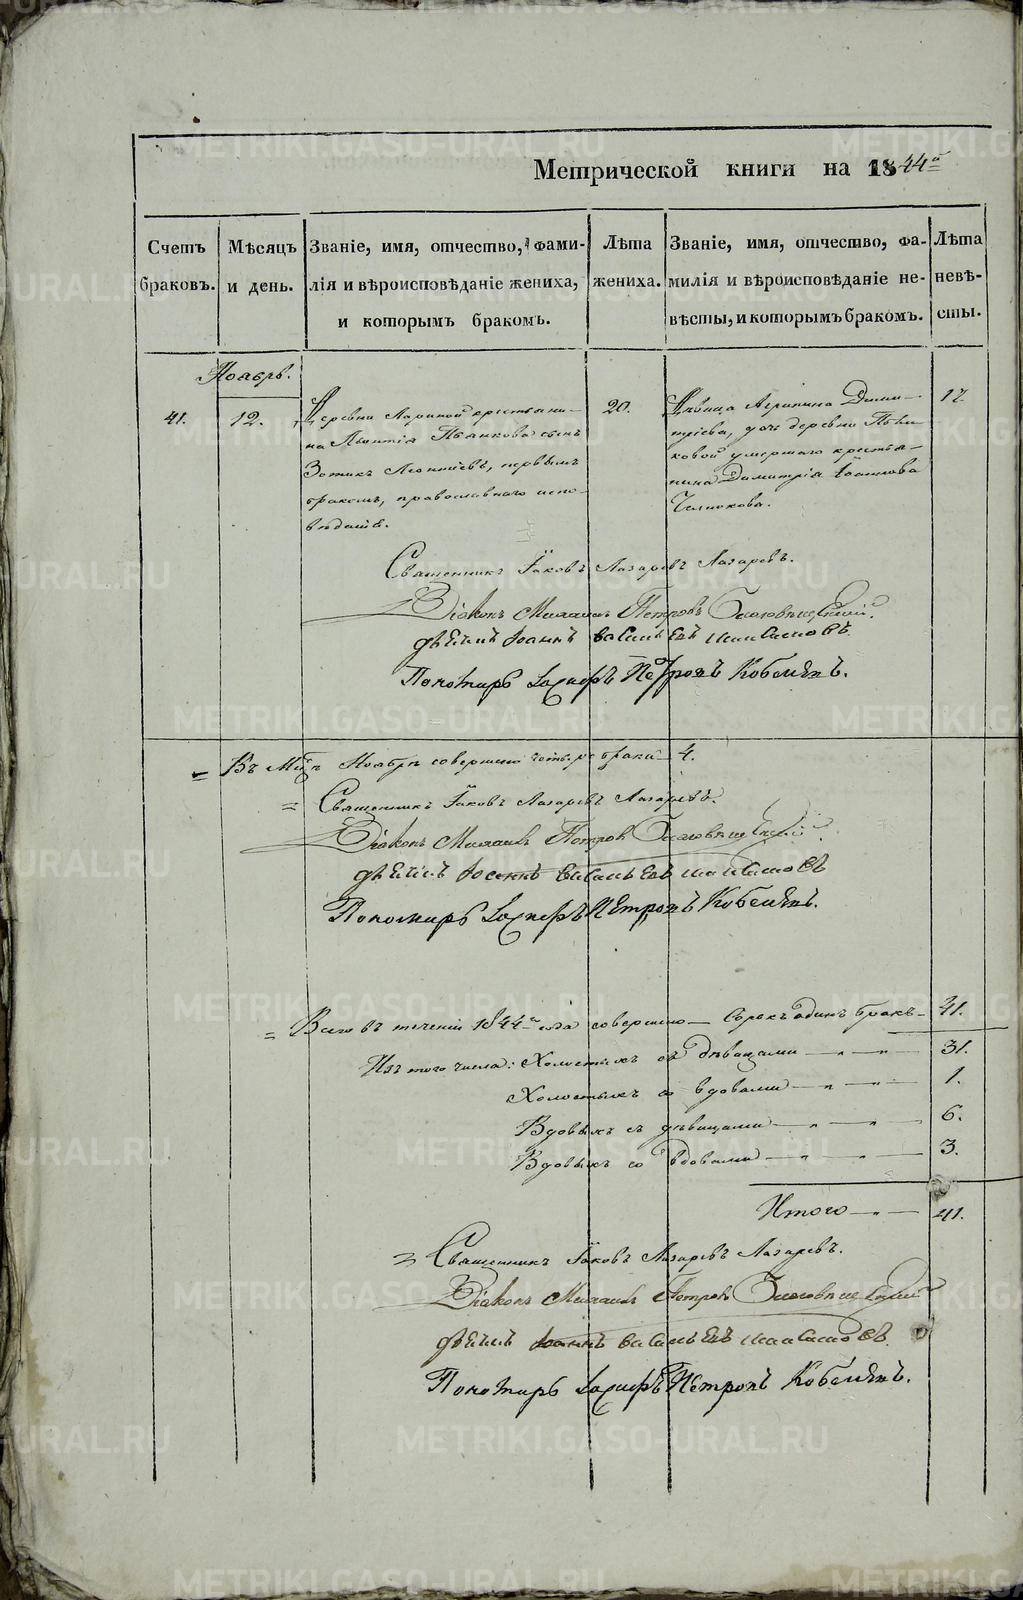 Метрической книги на 1844й
Счетъ браковъ.
Мѣсяцъ и день.
Званіе, имя, отчество, фами-
лія и вѣроисповѣданіе жениха,
и которымъ бракомъ.
Лѣта
жениха.
Званіе, имя, отчество, фа-
милія и вѣроисповѣданіе не-
вѣсты, и которымъ бракомъ.
Лѣта
невѣ-
сты.
Ноябрь.
41.
12.
Деревни Лариной крестьяни-
на Леонтія Пьянкова сынъ
Зотикъ Леонтіевъ, первымъ
бракомъ, православнаго испо-
вѣданія.
20.
Дѣвица Агрипина Дими-
тріева, дочь деревни
ковой умершаго крестья-
нина Димитрія
17.
Священникъ Іаковъ Лазаревъ Лазаревъ.
Діаконъ Михаилъ Петровъ
Іоаннъ Васильевъ
Пономарь Петровъ
Въ Мцѣ Ноябрѣ совершено четыре брака 4.
Священникъ Іаковъ Лазаревъ Лазаревъ.
Діаконъ Михаилъ Петровъ
Іоаннъ Васильевъ
Пономарь Петровъ
Всего въ теченіи 1844го года совершено — Сорокъ одинъ бракъ — 41.
Изъ того числа: Холостыхъ съ дѣвицами — „ — „ — 31.
Холостыхъ со вдовами — „ — „ — 1.
Вдовыхъ съ дѣвицами — „ — „ — 6.
Вдовыхъ со вдовами — „ — „ — 3.
Итого — „ — 41.
Священникъ Іаковъ Лазаревъ Лазаревъ.
Діаконъ Михаилъ Петровъ
Іоаннъ Васильевъ
Пономарь Петровъ
METRIKI.GASO-URAL.RU